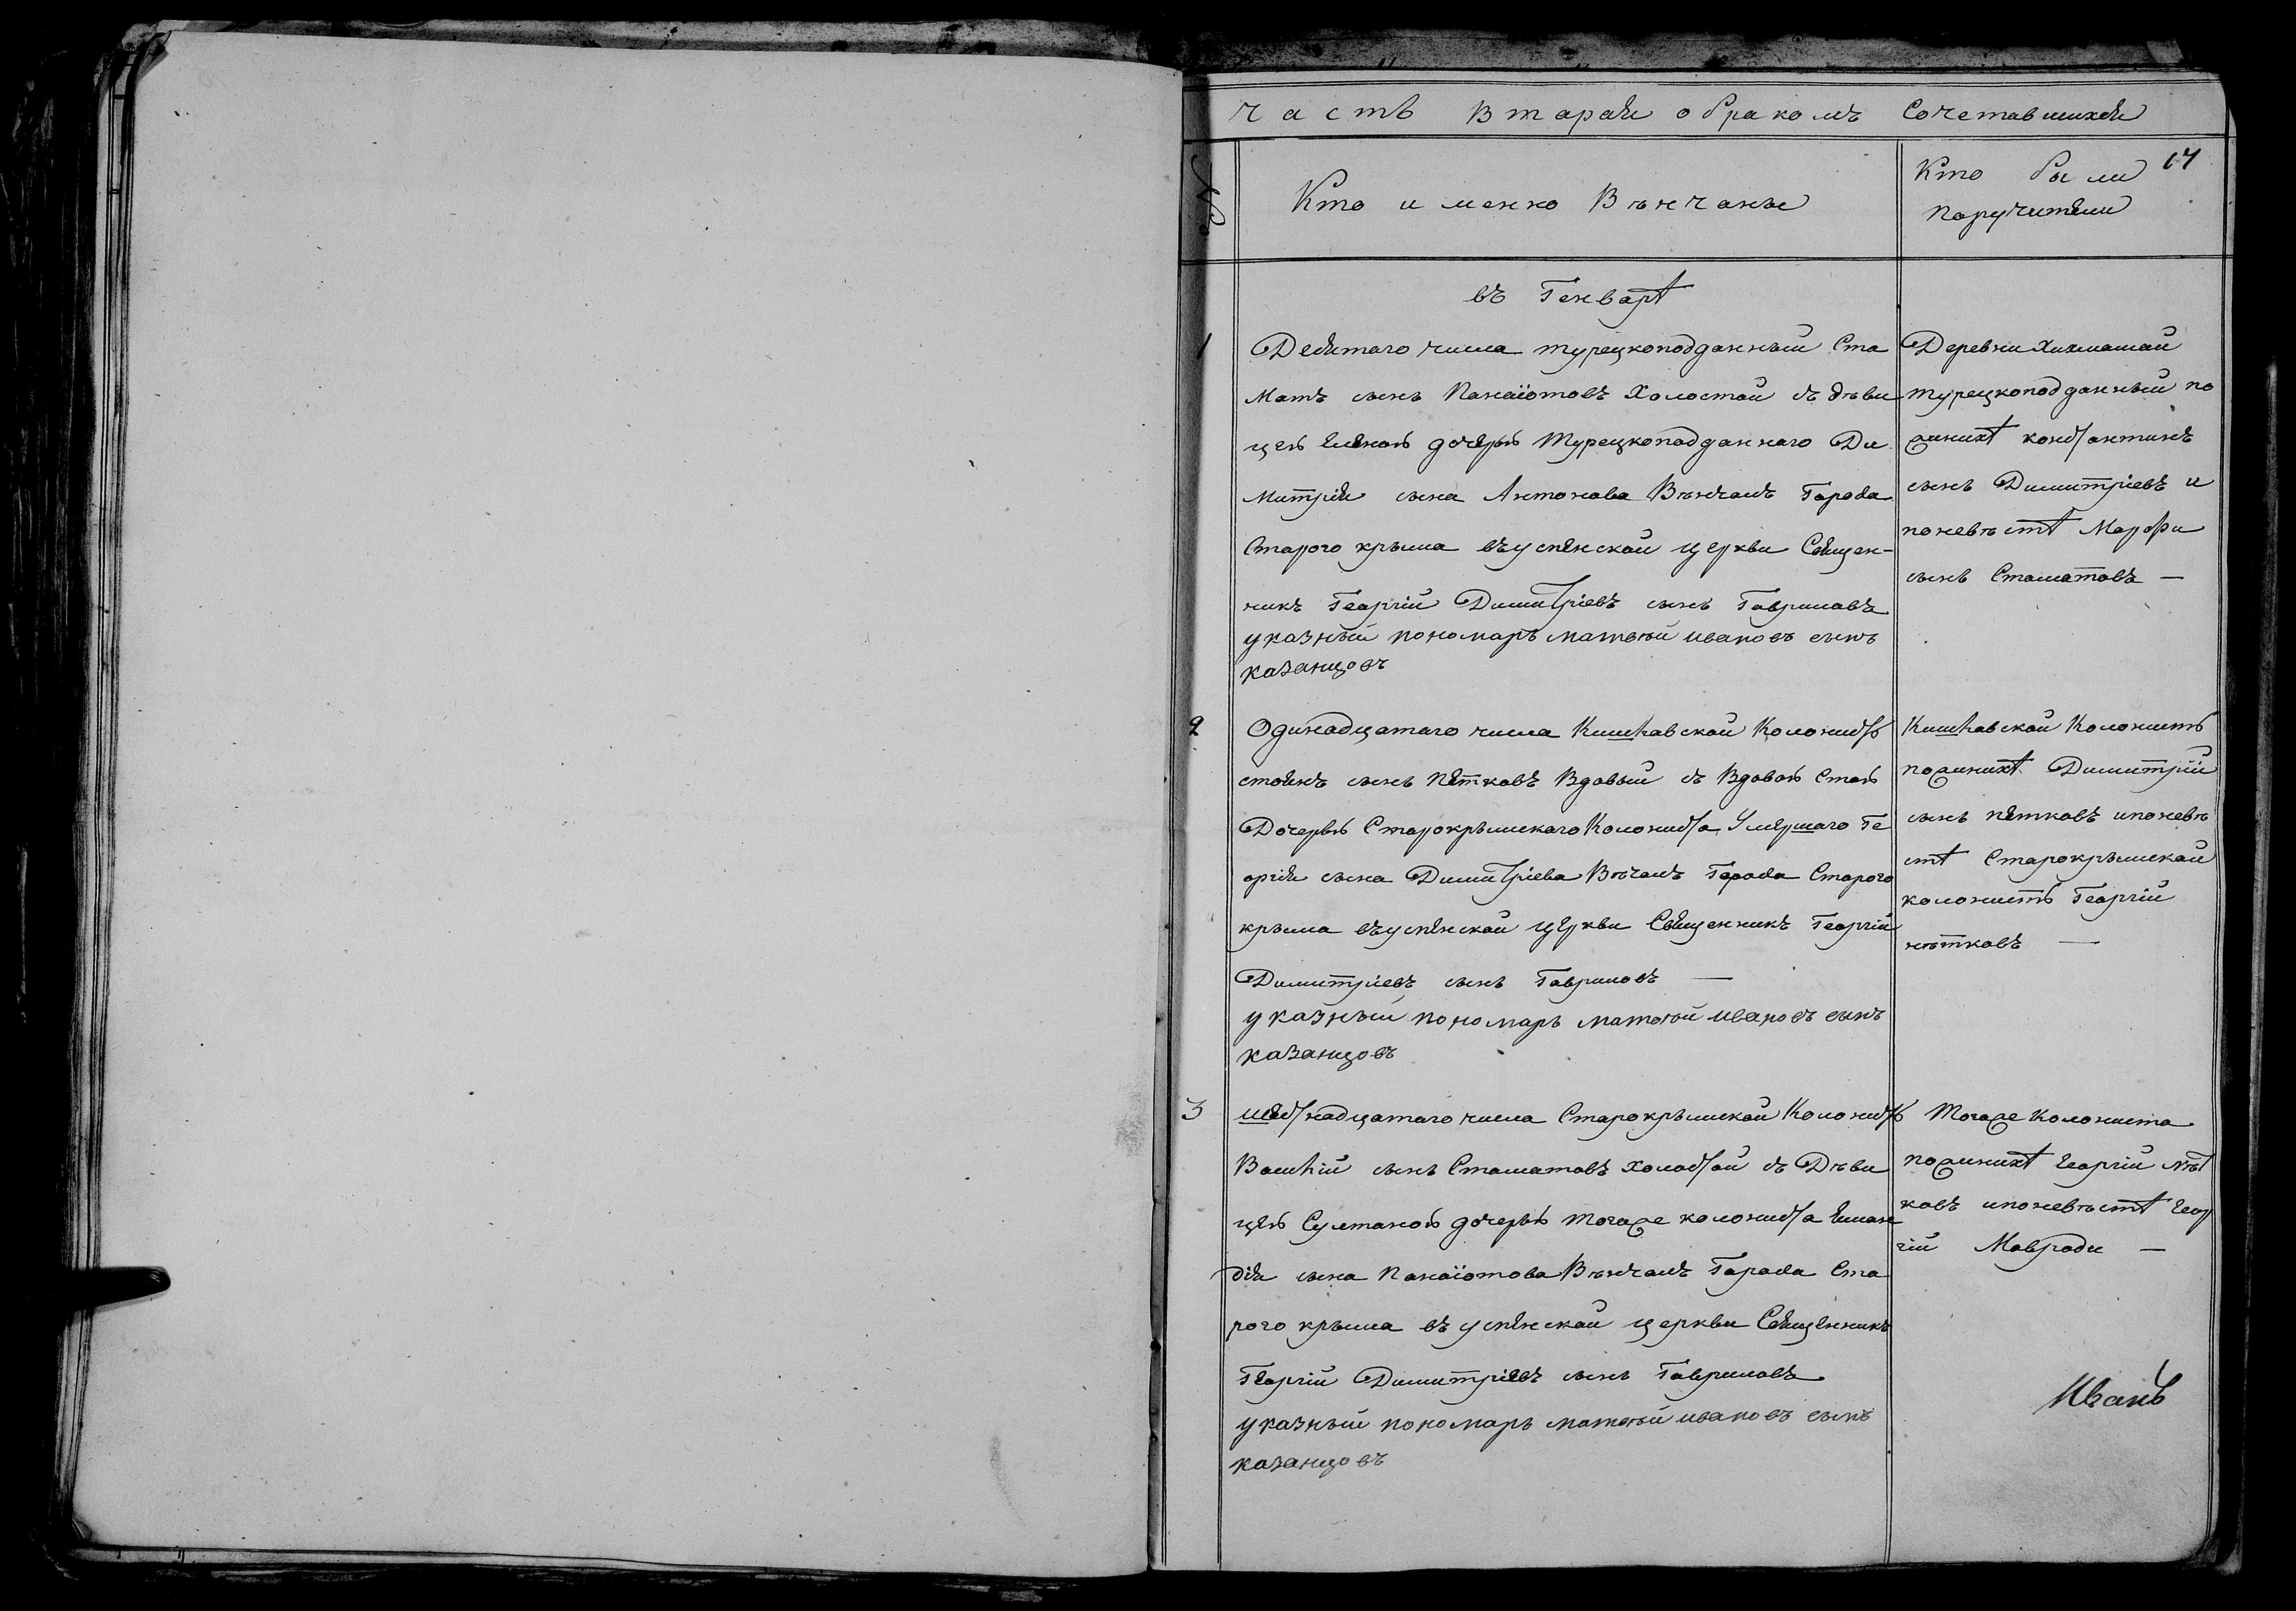 Часть втарая обракомъ Сочетавшихся
№
Кто именно Вѣнчаны
Кто были
Поручители
17
въ Генварѣ
1
Десятаго числа турецкоподданный Ста
матъ сынъ Панаіотовъ Холостой съ дѣви
цею Еленою дочерью Турецкоподданнаго Ди
митрія сына Антонова Вѣнчалъ Города
Старого крыма въуспенской церкви Священ-
никъ Георгій Димитріевъ сынъ Гавриловъ
указный пономарь матвѣй ивановъ сынъ
казанцовъ
Деревни
турецкоподданный по
женихѣ константинъ
сынъ Димитріевъ и
поневѣстѣ Марфи
сынъ Стаматовъ —
2
Одинадцатаго числа Кишлавской Колонистъ
стоянъ сынъ Петковъ Вдовый съ Вдовою Стою
Дочерью Старокрымскаго Колониста Умершаго Ге
оргія сына Димитріева Вѣчалъ Города Старого
крыма въуспенской церкви Священникъ Георгій
Димитріевъ сынъ Гавриловъ —
указный пономарь матвѣй ивановъ сынъ
казанцовъ
Кишлавской Колонистъ
поженихѣ Димитрій
сынъ петковъ ипоневѣ
стѣ Старокрымской
колонистъ Георгій
—
3
шестнадцатаго числа Старокрымской Колонистъ
Василій сынъ Стаматовъ холостой съ Дѣви
цею Султаною дочерью тогоже колониста Еман
діи сына Панаіотова Вѣнчалъ Города Ста
рого крыма въ успенской церкви Священникъ
Георгій Димитріевъ сынъ Гавриловъ
указный пономарь матвѣй ивановъ сынъ
казанцовъ
Тогоже Колониста
поженихѣ Георгій
ковъ ипоневѣстѣ Геор
гій Мавроди —
Иванъ